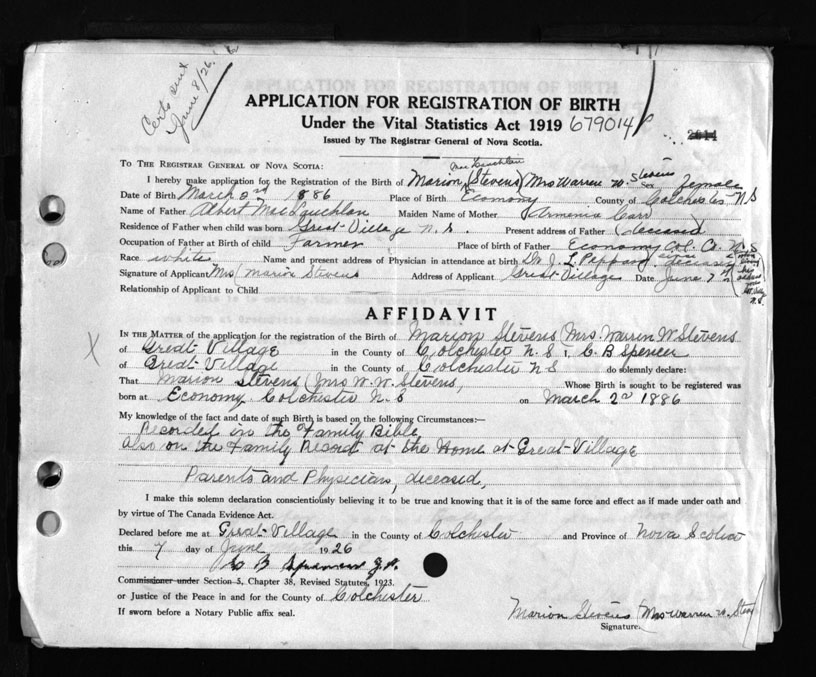 Certs sent
June 8/26.
APPLICATION FOR REGISTRATION OF BIRTH
Under the Vital Statistics Act 1919 679014
2644
Issued by The Registrar General of Nova Scotia.
TO THE REGISTRAR GENERAL OF NOVA SCOTIA:
MacLauchlan
I hereby make application for the Registration of the Birth of Marion (Stevens) Mrs Warren W. Stevens Sex Female
Date of Birth March 2nd 1886 Place of Birth Economy County of Colchester N S
Name of Father Albert MacLauchlan Maiden Name of Mother Armenia Carr
Residence of Father when child was born Great Village N. S. Present address of Father (deceased)
Occupation of Father at Birth of child Farmer Place of birth of Father Economy Col. Co. N. S
Race white Name and present address of Physician in attendance at birth Dr J. L. Peppard deceased
Signature of Applicant Mrs Marion Stevens Address of Applicant Great Village Date June 7
Relationship of Applicant to Child
AFFIDAVIT
IN THE MATTER of the application for the registration of the Birth of Marion Stevens (Mrs. Warren W Stevens
X
of Great Village in the County of Colchester N. S I, C. B Spencer
of Great Village in the County of Colchester N S do solemnly declare:
That Marion Stevens (Mrs W. W. Stevens, Whose Birth is sought to be registered was
born at Economy Colchester N. S on March 2nd 1886
My knowledge of the fact and date of such Birth is based on the following Circumstances:—
Recorded in the Family Bible,
Also on the Family Record at the Home at Great Village
Parents and Physician, deceased,
I make this solemn declaration conscientiously believing it to be true and knowing that it is of the same force and effect as if made under oath and
by virtue of The Canada Evidence Act.
Declared before me at Great Village in the County of Colchester and Province of Nova Scotia
this 7 day of June 1926
C B Spencer J. P.
Commissioner under Section 5, Chapter 38, Revised Statutes, 1923.
or Justice of the Peace in and for the County of Colchester
If sworn before a Notary Public affix seal.
Marion Stevens (Mrs Warren W. Stev
Signature.